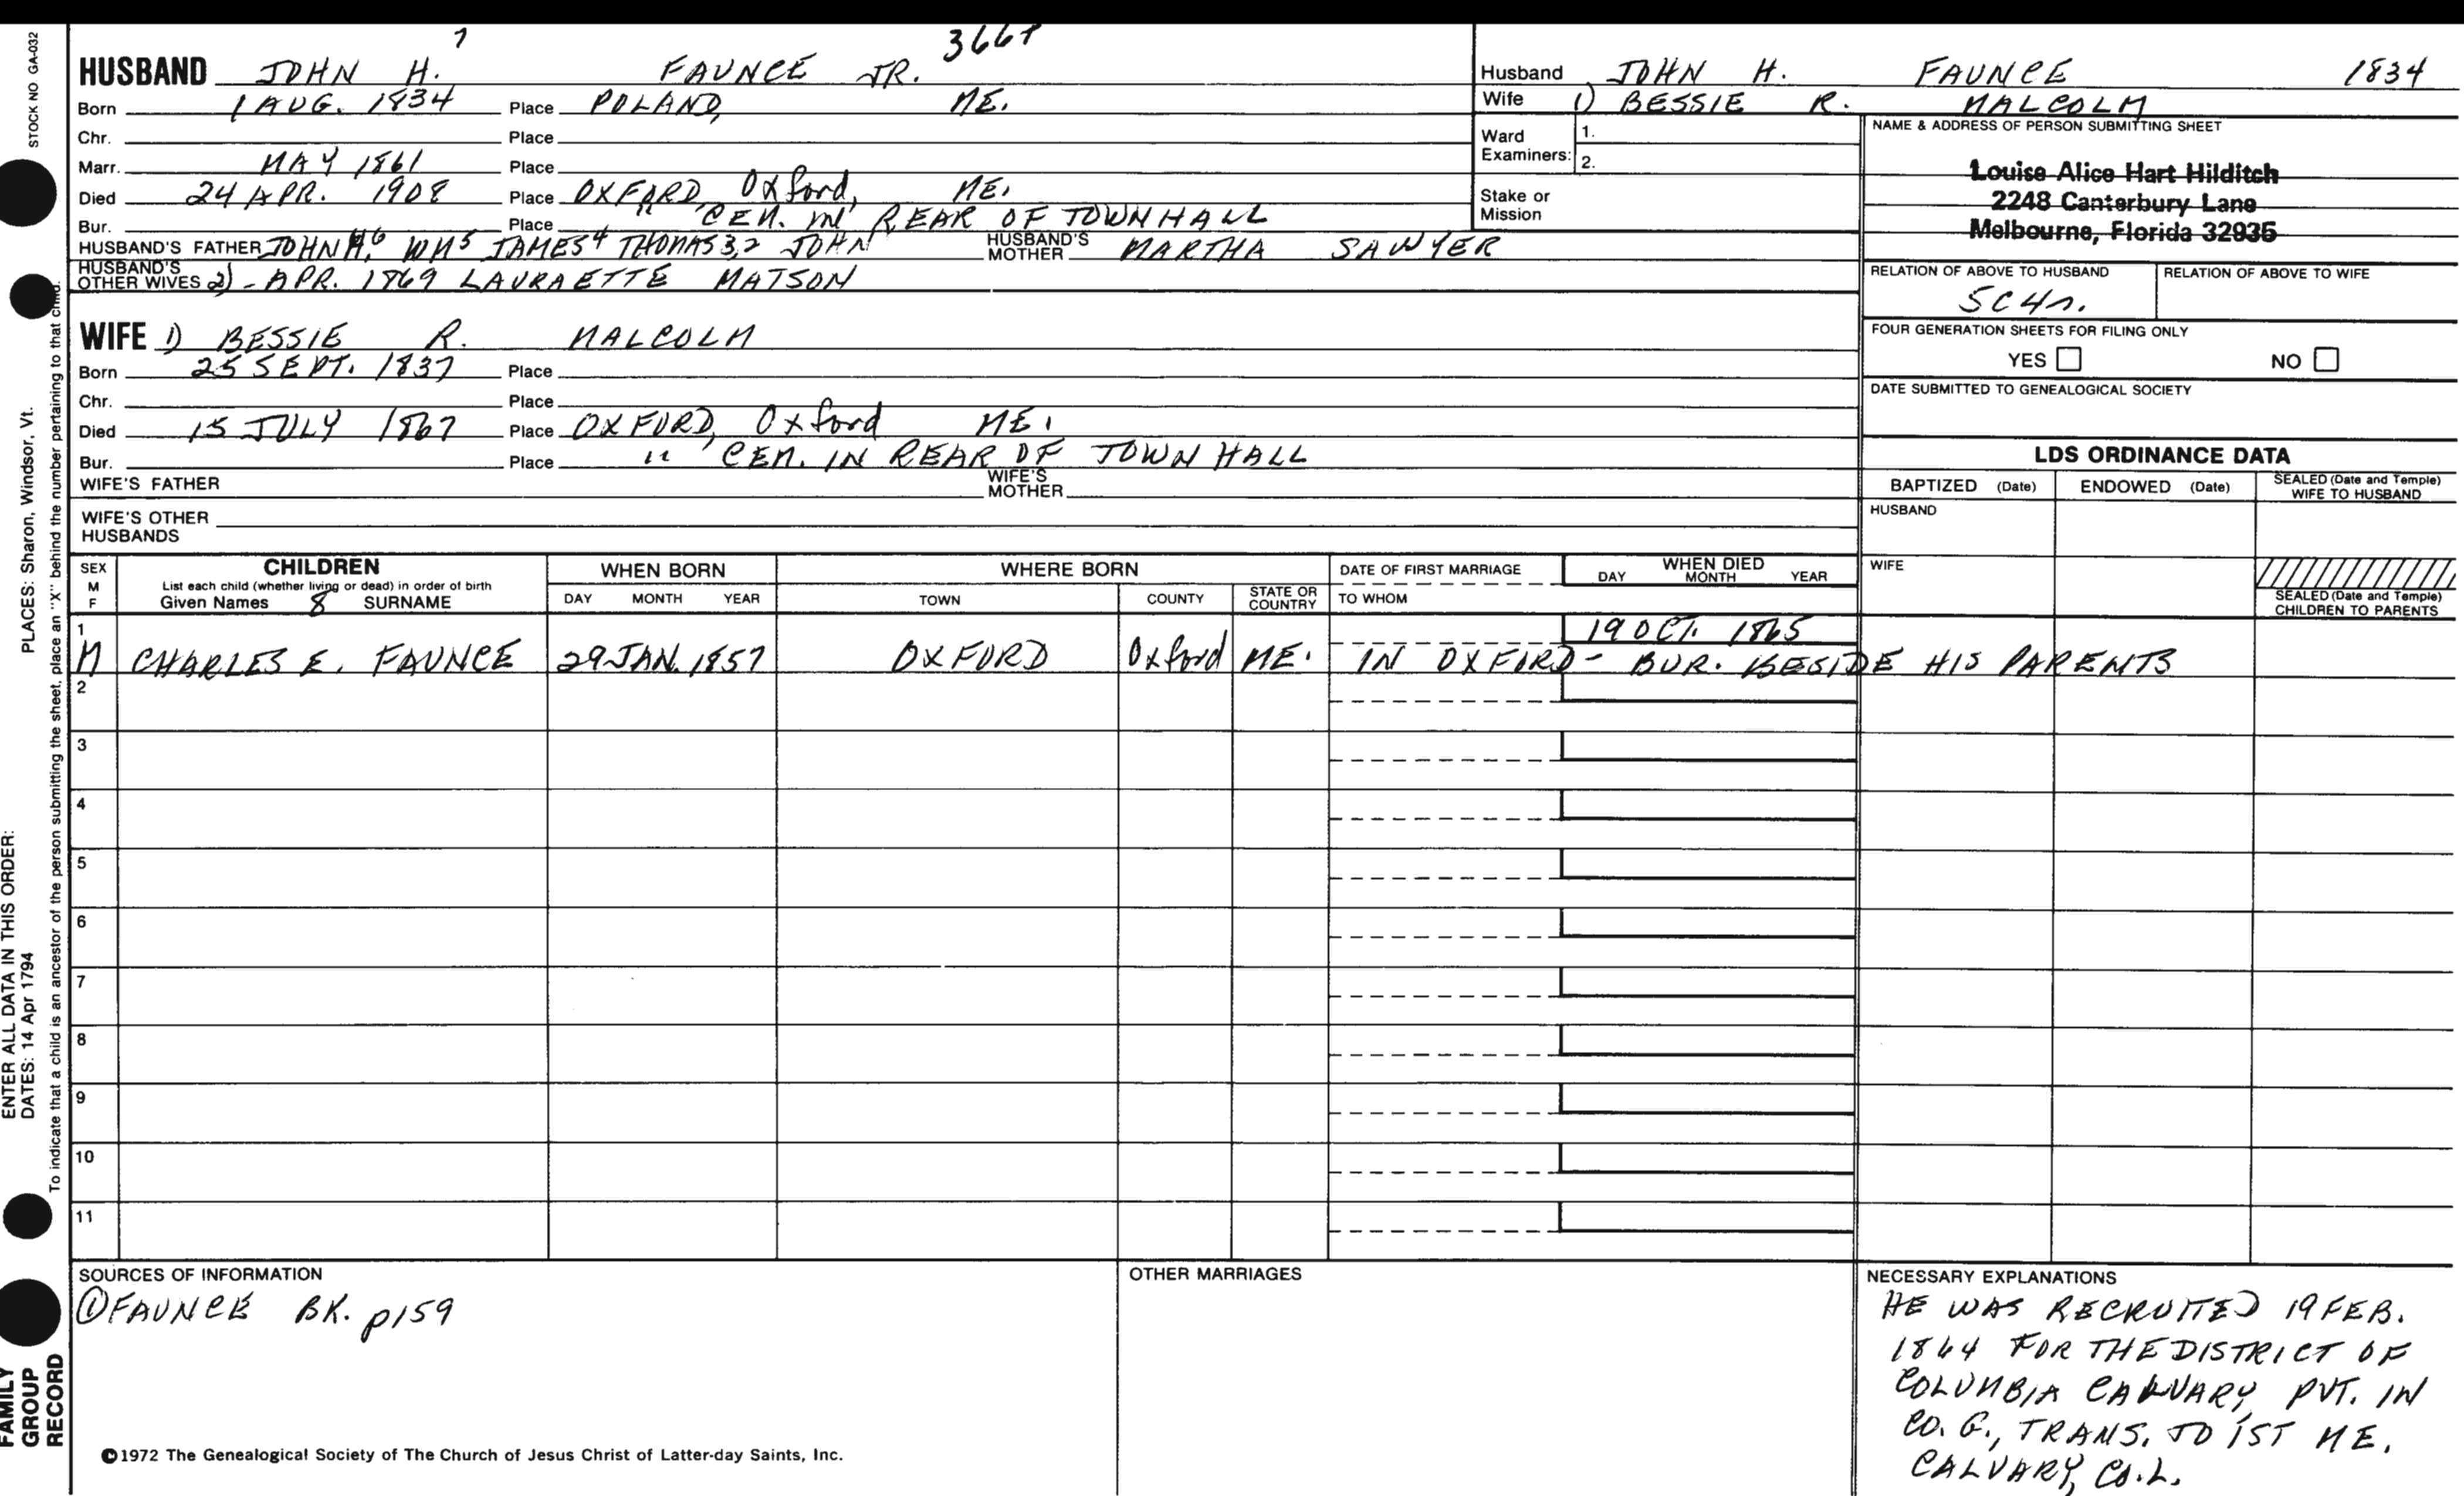 STOCK NO GA-032
PLACES: Sharon, Windsor, Vt.
ENTER ALL DATA IN THIS ORDER:
DATES: 14 Apr 1794
To indicate that a child is an ancestor of the person submitting the sheet, place an "X" behind the number pertaining to that child.
FAMILY
GROUP
RECORD
7
HUSBAND JOHN H. FAUNCE JR.
Born 1 AUG. 1834 Place POLAND, ME.
Chr. Place
Marr. MAY 1861 Place
Died 24 APR. 1908 Place OXFORD, Oxford, ME.
Bur. Place " CEM. IN REAR OF TOWN HALL
HUSBAND'S FATHER JOHN H.6 WM5 JAMES4 THOMAS3,2 JOHN HUSBAND'S MOTHER MARTHA SAWYER
HUSBAND'S OTHER WIVES 2) - APR. 1869 LAURAETTE MATSON
WIFE 1) BESSIE R. MALCOLM
Born 25 SEPT. 1837 Place
Chr. Place
Died 15 JULY 1867 Place OXFORD, Oxford ME.
Bur. Place " CEM. IN REAR OF TOWN HALL
WIFE'S FATHER WIFE'S MOTHER
WIFE'S OTHER
HUSBANDS
Husband JOHN H. FAUNCE 1834
Wife 1) BESSIE R. MALCOLM
Ward
Examiners:
1.
2.
Stake or
Mission
NAME & ADDRESS OF PERSON SUBMITTING SHEET
Louise Alice Hart Hilditch
2248 Canterbury Lane
Melbourne, Florida 32935
RELATION OF ABOVE TO HUSBAND RELATION OF ABOVE TO WIFE
5C4r.
FOUR GENERATION SHEETS FOR FILING ONLY
YES NO
DATE SUBMITTED TO GENEALOGICAL SOCIETY
LDS ORDINANCE DATA
BAPTIZED (Date) ENDOWED (Date) SEALED (Date and Temple) WIFE TO HUSBAND
HUSBAND
WIFE
SEALED (Date and Temple)
CHILDREN TO PARENTS
SEX
M
F
CHILDREN
List each child (whether living or dead) in order of birth
Given Names 8 SURNAME
WHEN BORN
DAY MONTH YEAR
WHERE BORN
TOWN COUNTY STATE OR COUNTRY
DATE OF FIRST MARRIAGE
TO WHOM
WHEN DIED
DAY MONTH YEAR
1
19 OCT. 1865
M CHARLES E. FAUNCE 29 JAN. 1857 OXFORD Oxford ME. IN OXFORD - BUR. BESIDE HIS PARENTS
2
3
4
5
6
7
8
9
10
11
SOURCES OF INFORMATION
① FAUNCE BK. p159
OTHER MARRIAGES
NECESSARY EXPLANATIONS
HE WAS RECRUITED 19 FEB.
1864 FOR THE DISTRICT OF
COLUMBIA CALVARY, PVT. IN
CO. G., TRANS. TO 1ST ME.
CALVARY, CO. L.
©1972 The Genealogical Society of The Church of Jesus Christ of Latter-day Saints, Inc.